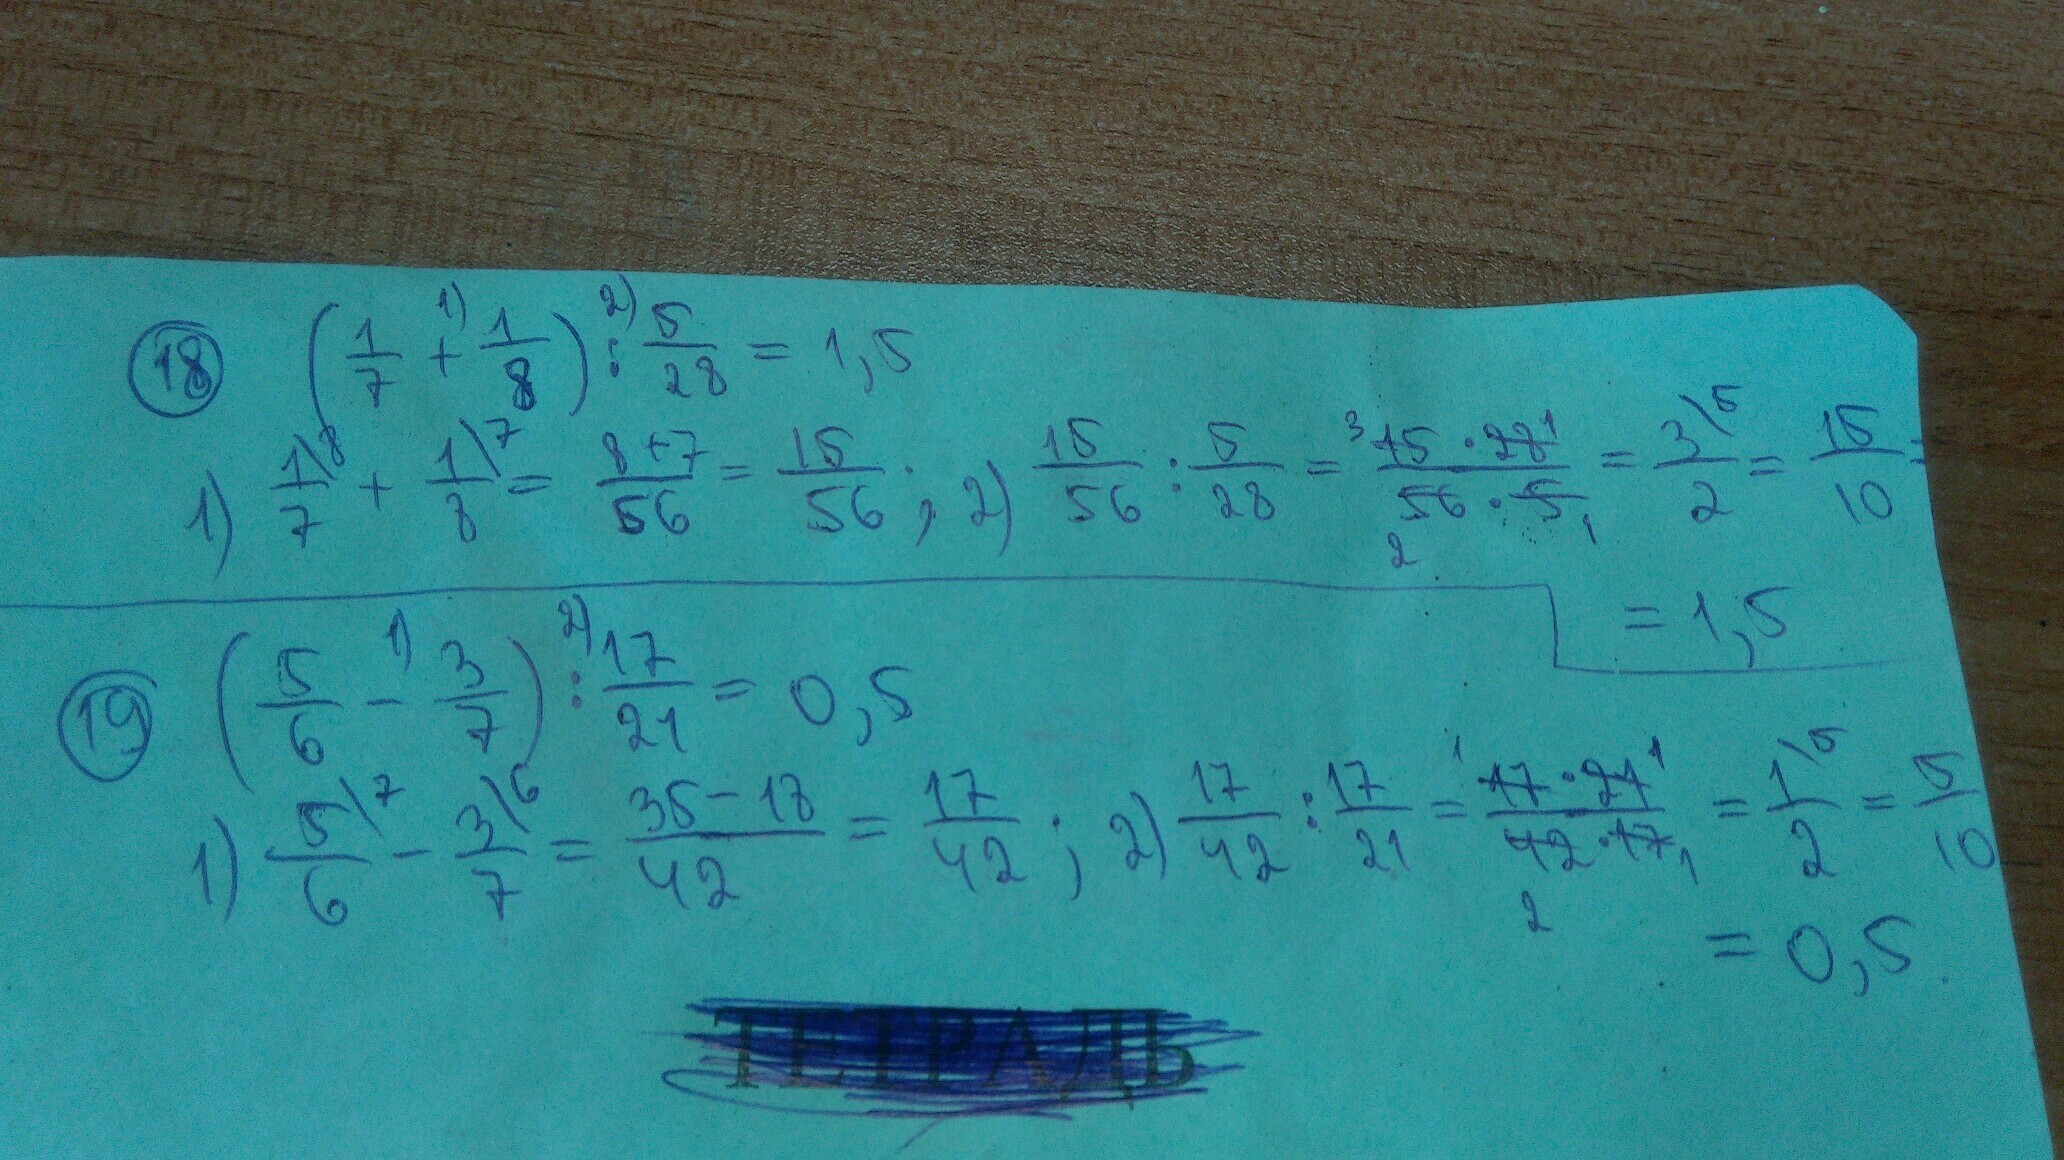 18 (1/7 + 1) 1/8) 2) : 5/28 = 1,5
1) 1\8/7 + 1\7/8 = 8+7/56 = 15/56 ; 2) 15/56 : 5/28 = 3 15 · 28 1/56 · 5 2 1 = 3\5/2 = 15/10 =
= 1,5
19 (5/6 1) − 3/7) 2) : 17/21 = 0,5
1) 5\7/6 − 3\6/7 = 35−18/42 = 17/42 ; 2) 17/42 : 17/21 = 1 17 · 21 1/42 · 17 2 1 = 1\5/2 = 5/10
= 0,5
ТЕТРАДЬ